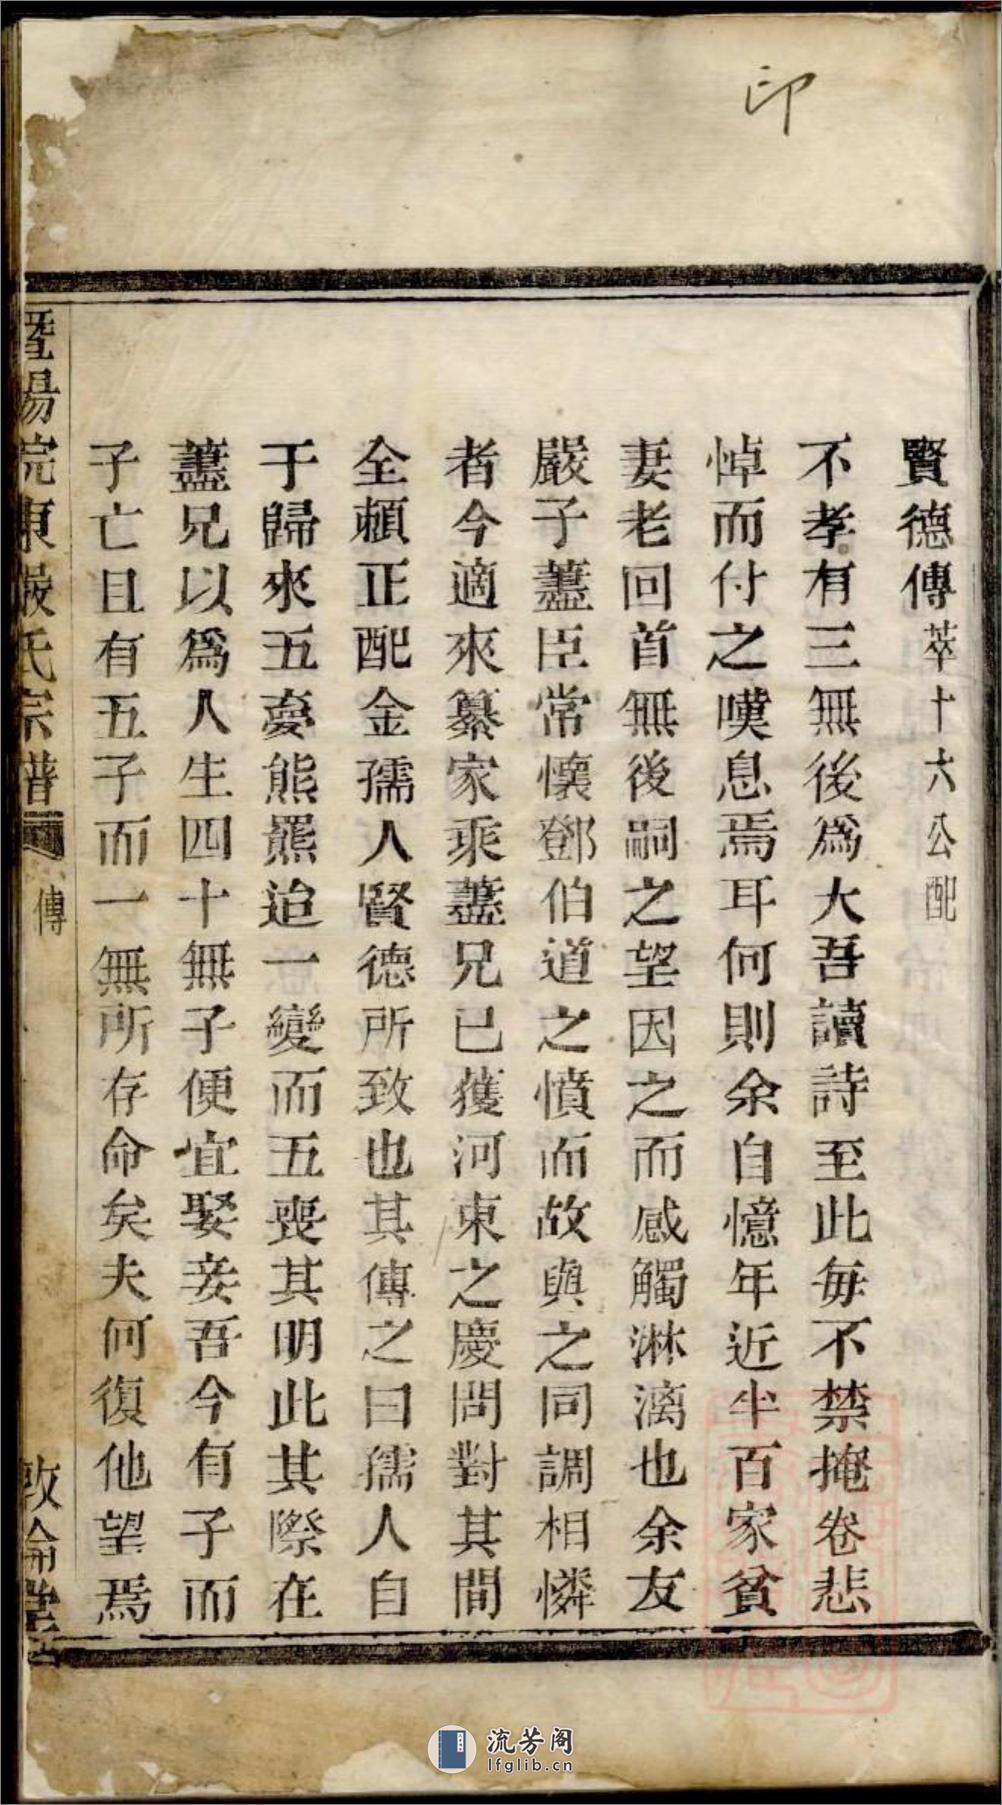 印
賢德傳 萃十六公配
不孝有三無後爲大吾讀詩至此毎不禁掩卷悲
悼而付之嘆息焉耳何則余自憶年近半百家貧
妻老回首無後嗣之望因之而感觸淋漓也余友
嚴子藎臣常懷鄧伯道之憤而故與之同調相憐
者今適來纂家乘藎兄已獲河東之慶問對其間
全頼正配金孺人賢德所致也其傳之曰孺人自
于歸來五夢熊羆迨一變而五喪其明此其際在
藎兄以爲人生四十無子便宜娶妾吾今有子而
子亡且有五子而一無所存命矣夫何復他望焉
暨陽浣東嚴氏宗譜 傳 敦倫堂
流芳阁
lfglib.cn